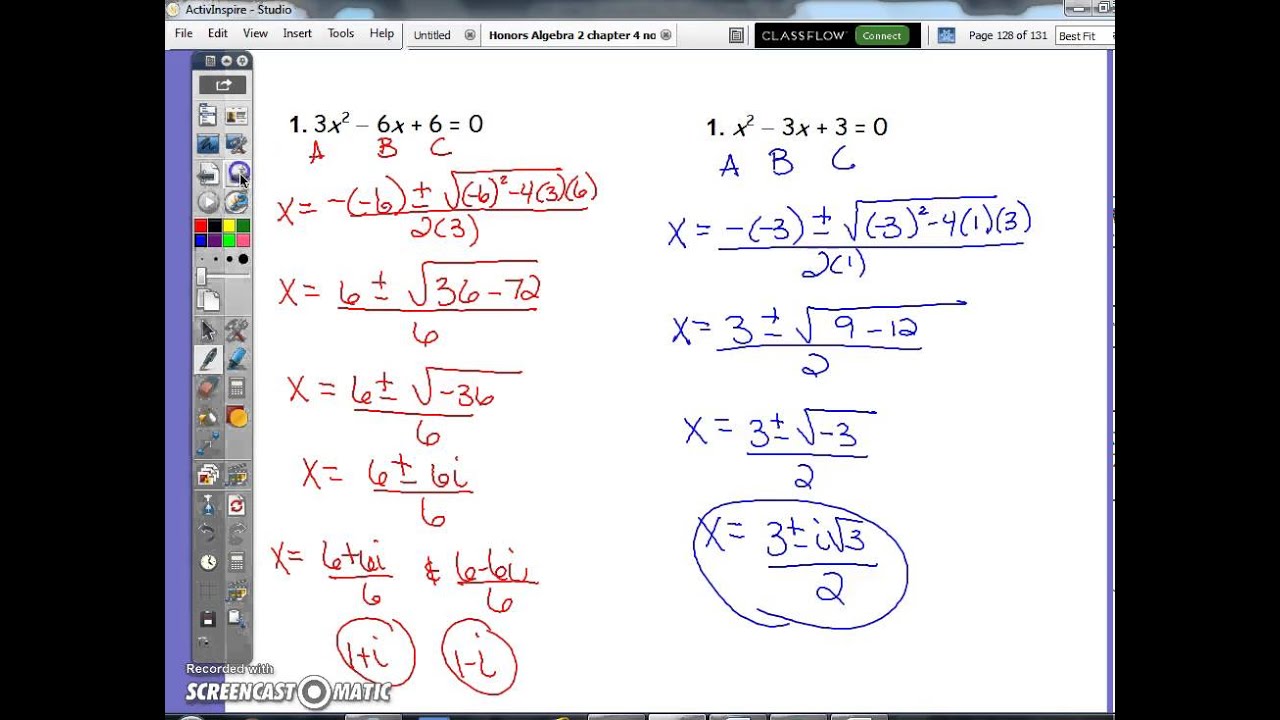 ActivInspire - Studio
File Edit View Insert Tools Help Untitled Honors Algebra 2 chapter 4 no CLASSFLOW Connect Page 128 of 131 Best Fit
1. 3x² − 6x + 6 = 0
A B C
x = −(−6) ± √(−6)²−4(3)(6)
2(3)
x = 6 ± √36−72
6
x = 6 ± √−36
6
x = 6 ± 6i
6
x = 6+6i & 6−6i
6 6
1+i 1−i
1. x² − 3x + 3 = 0
A B C
x = −(−3) ± √(−3)²−4(1)(3)
2(1)
x = 3 ± √9−12
2
x = 3 ± √−3
2
x = 3 ± i√3
2
Recorded with
SCREENCAST MATIC